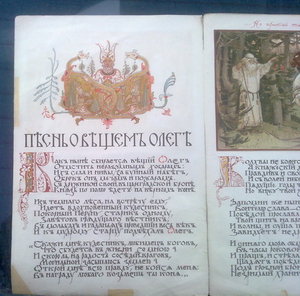 ПѢСНЬ О ВѢЩЕМЪ ОЛЕГѢ
Какъ нынѣ сбирается вѣщій Олегъ
Отмстить неразумнымъ хозарамъ:
Ихъ села и нивы за буйный набѣгъ
Обрекъ онъ мечамъ и пожарамъ.
Съ дружиной своей, въ цареградской бронѣ,
Князь по полю ѣдетъ на вѣрномъ конѣ.
Изъ темнаго лѣса, на встрѣчу ему,
Идетъ вдохновенный кудесникъ,
Покорный Перуну старикъ одному,
Завѣтовъ грядущаго вѣстникъ,
Въ мольбахъ и гаданьяхъ проведшій весь вѣкъ.
И къ мудрому старцу подъѣхалъ Олегъ.
„Скажи мнѣ, кудесникъ, любимецъ боговъ,
Что сбудется въ жизни со мною?
И скоро ль, на радость сосѣдей-враговъ,
Могильной засыплюсь землею?
Открой мнѣ всю правду, не бойся меня:
Въ награду любого возьмешь ты коня".
„Волхвы не боятся
И княжескій
Правдивъ и св
И съ волей не
Грядущіе годы
Но вижу твой
Запомни же нын
Воителю слава
Побѣдой прослав
Твой щитъ на
И волны и суша
Завидуетъ
И синяго моря об
Въ часы роков
И пращъ и стрѣла
Щадятъ побѣди
Подъ грозной броне
Незримый хранит